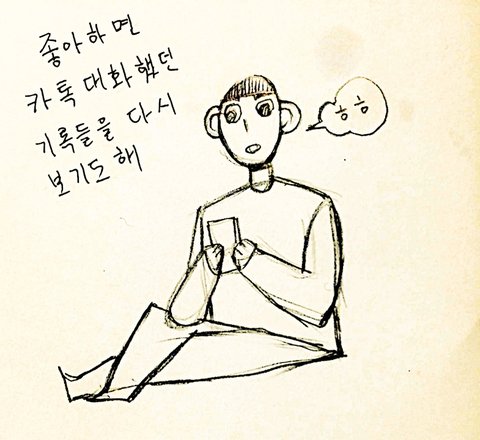 좋아하면
카톡 대화했던
기록들을 다시
보기도 해
ㅎㅎ